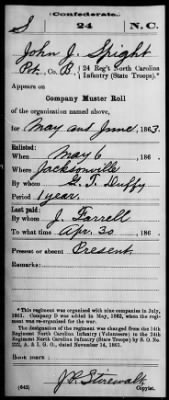 Confederate.
S 24 N.C.
John J. Spight
Pvt, Co. B, 24 Reg't North Carolina
Infantry (State Troops).*
Appears on
Company Muster Roll
of the organization named above,
for May and June, 1863.
Enlisted:
When May 6, 186 .
Where Jacksonville
By whom G. T. Duffy
Period 1 year.
Last paid:
By whom J. Farrell
To what time Apr. 30, 186 .
Present or absent Present
Remarks:
*This regiment was organized with nine companies in July,
1861. Company D was added in May, 1862, when the regi-
ment was re-organized for the war.
The designation of the regiment was changed from the 14th
Regiment North Carolina Infantry (Volunteers) to the 24th
Regiment North Carolina Infantry (State Troops) by S. O. No.
222, A. & I. G. O., dated November 14, 1861.
Book mark:
(642) J. P. Stirewalt
Copyist.